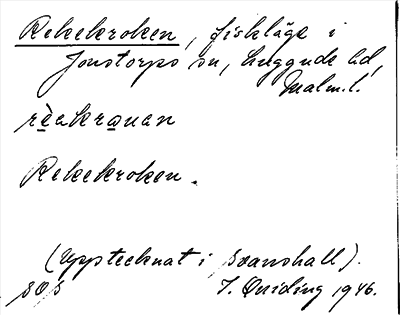 Rekekroken, fiskläge i
Jonstorps sn, Luggude hd,
Malm. l.
rèakrauan
Rekekroken.
(Upptecknat i Svanshall).
SOS I. Quiding 1946.